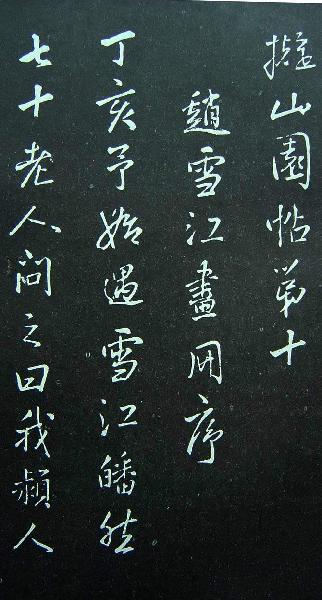 擬山園帖第十
趙雪江畫册序
丁亥予始遇雪江皤然
七十老人問之曰我潁人